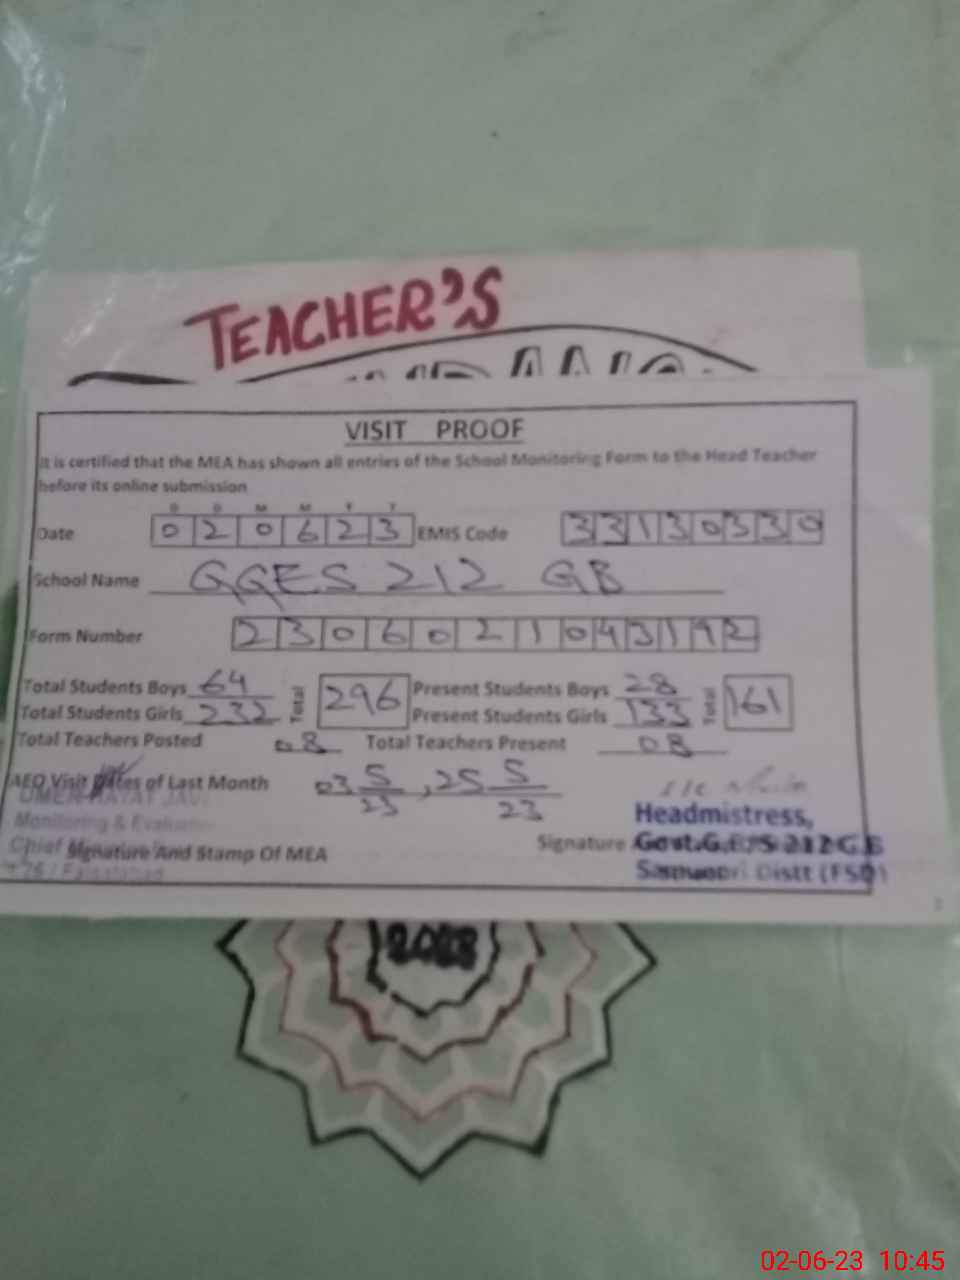 TEACHER'S
VISIT PROOF
It is certified that the MEA has shown all entries of the School Monitoring Form to the Head Teacher
before its online submission
D D M M Y Y
Date 020623 EMIS Code 33130330
School Name GGES 212 GB
Form Number 2306021043192
Total Students Boys 64 Total 296 Present Students Boys 28 Total 161
Total Students Girls 232 Present Students Girls 133
Total Teachers Posted 08 Total Teachers Present 08
AEO Visit Dates of Last Month 03 5/23, 25 5/23
Monitoring & Evaluation
Headmistress,
Signature And Stamp Of MEA
Signature
Govt.G.E/S 212 G.B
Distt (FSD)
2023
02-06-23 10:45